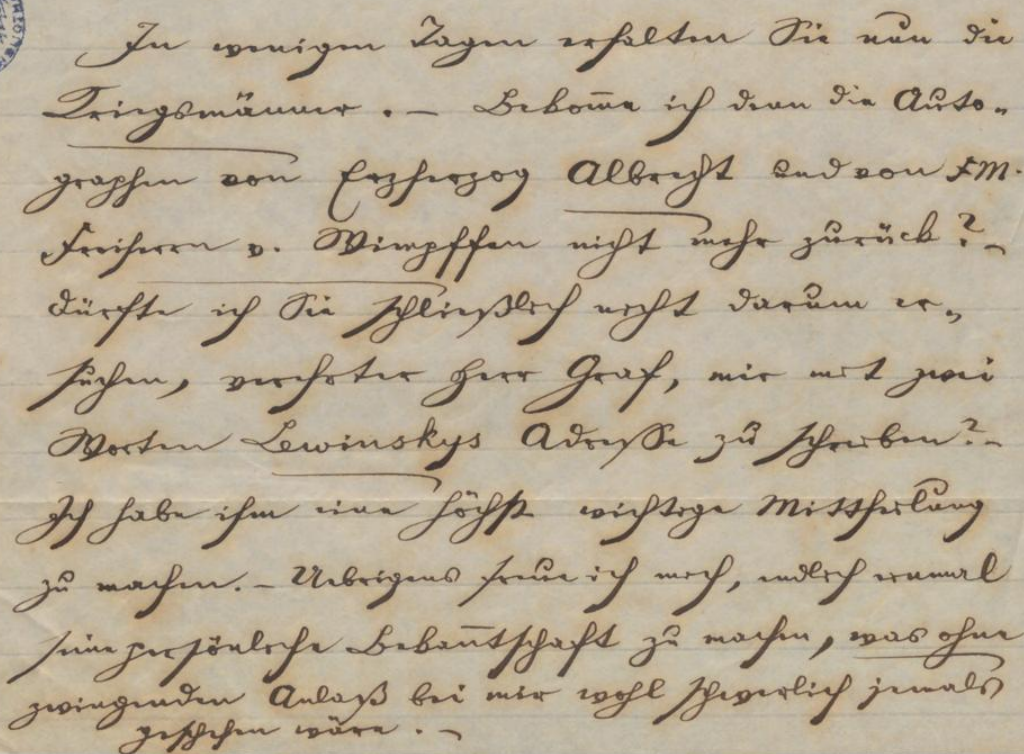 In wenigen Tagen erhalten Sie nun die
Kriegsmänner. – Bekom̄e ich denn die Auto-
graphen von Erzherzog Albrecht und von FM.
Freiherrn v. Wimpffen nicht mehr zurück? –
Dürfte ich Sie schließlich recht darum er-
suchen, verehrter Herr Graf, mir mit zwei
Worten Lewinskys Adresse zu schreiben? –
Ich habe ihm eine höchst wichtige Mittheilung
zu machen. – Uebrigens freue ich mich, endlich einmal
seine persönliche Bekan̄tschaft zu machen, was ohne
zwingenden Anlaß bei mir wohl schwerlich jemals
geschehen wäre. –